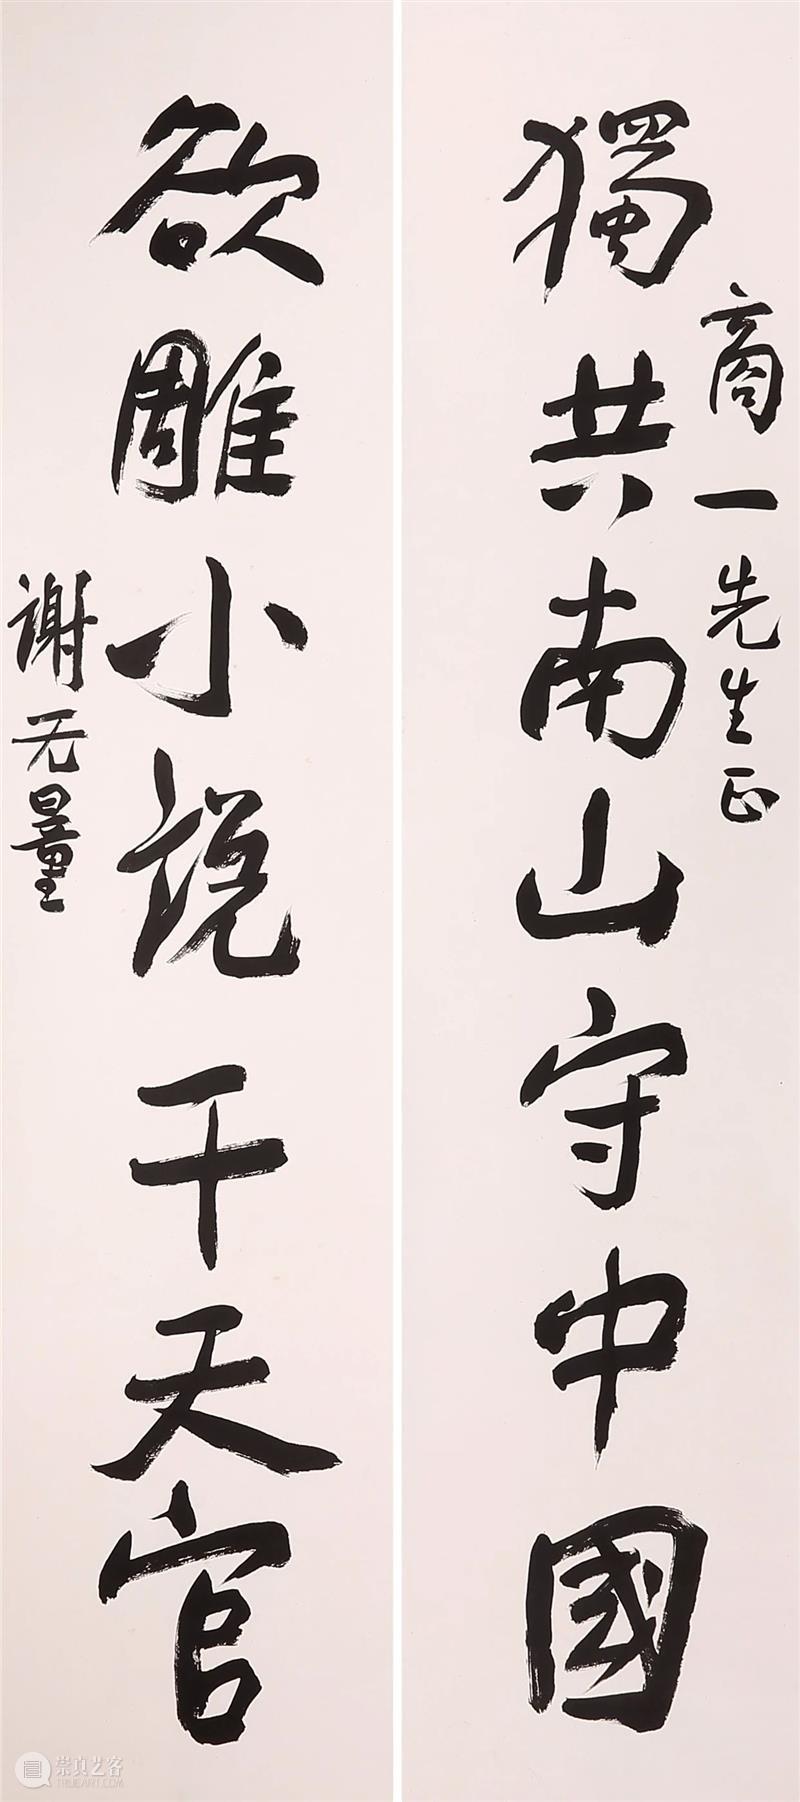 獨共南山守中國
商一先生正
欲雕小說干天官
谢无量
崇真艺客
TRUEART.COM